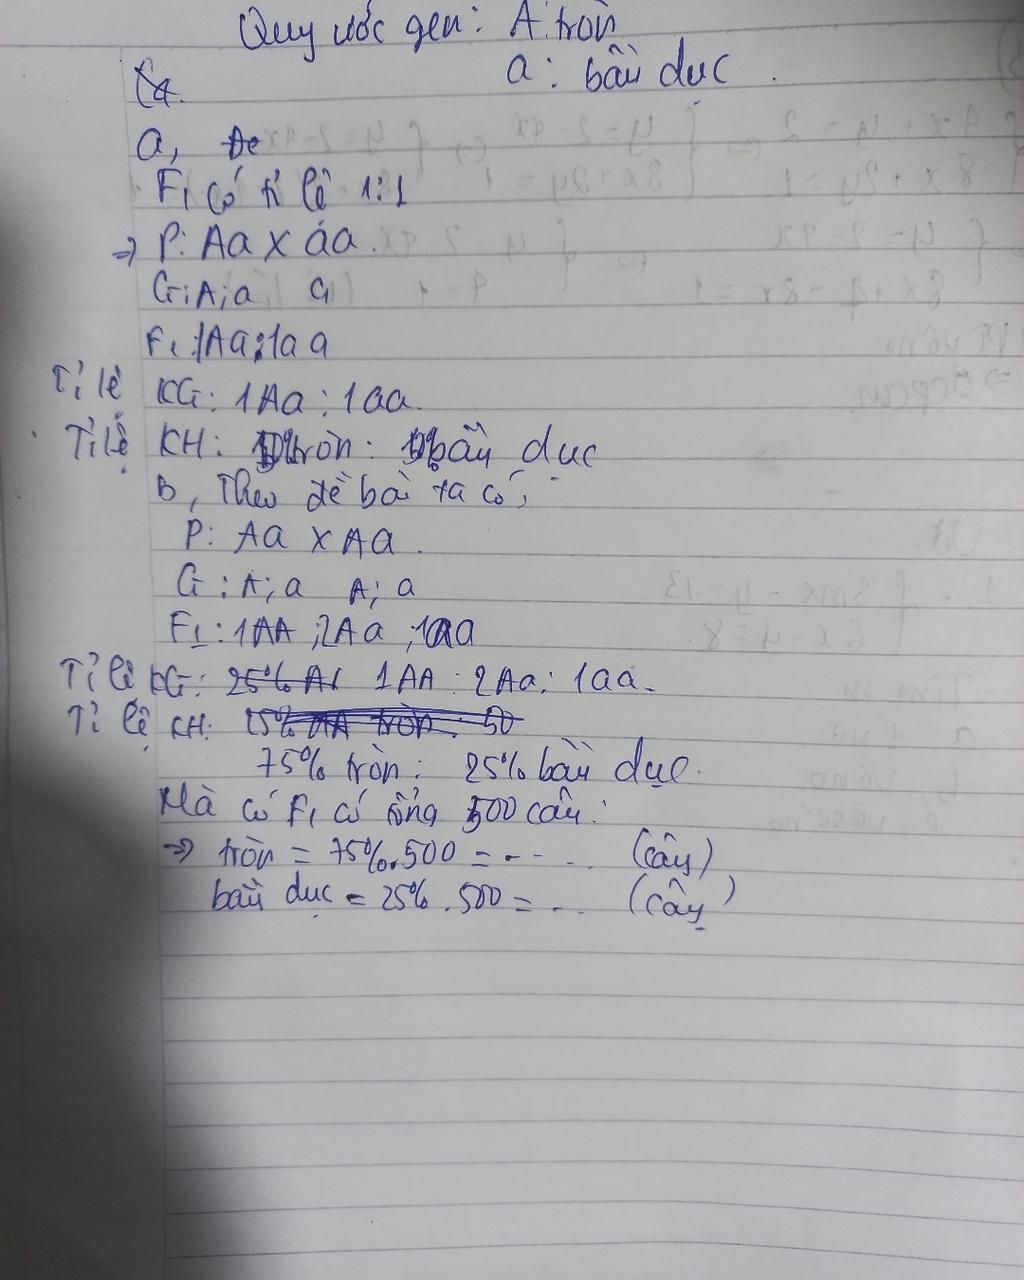 Quy ước gen: A: tròn
a: bầu dục.
C4.
a,
F1 có tỉ lệ 1:1
=> P: Aa x aa.
G: A; a a
F1: 1Aa : 1aa
Tỉ lệ KG: 1Aa : 1aa.
Tỉ lệ KH: tròn: bầu dục
b, Theo đề bài ta có,
P: Aa x Aa.
G: A; a A; a
F1: 1AA ; 2Aa ; 1aa
Tỉ lệ KG: 1AA : 2Aa : 1aa.
Tỉ lệ KH:
75% tròn: 25% bầu dục.
Mà có F1 có tổng 500 cây:
=> tròn = 75%.500 = ... (cây)
bầu dục = 25% . 500 = ... (cây)